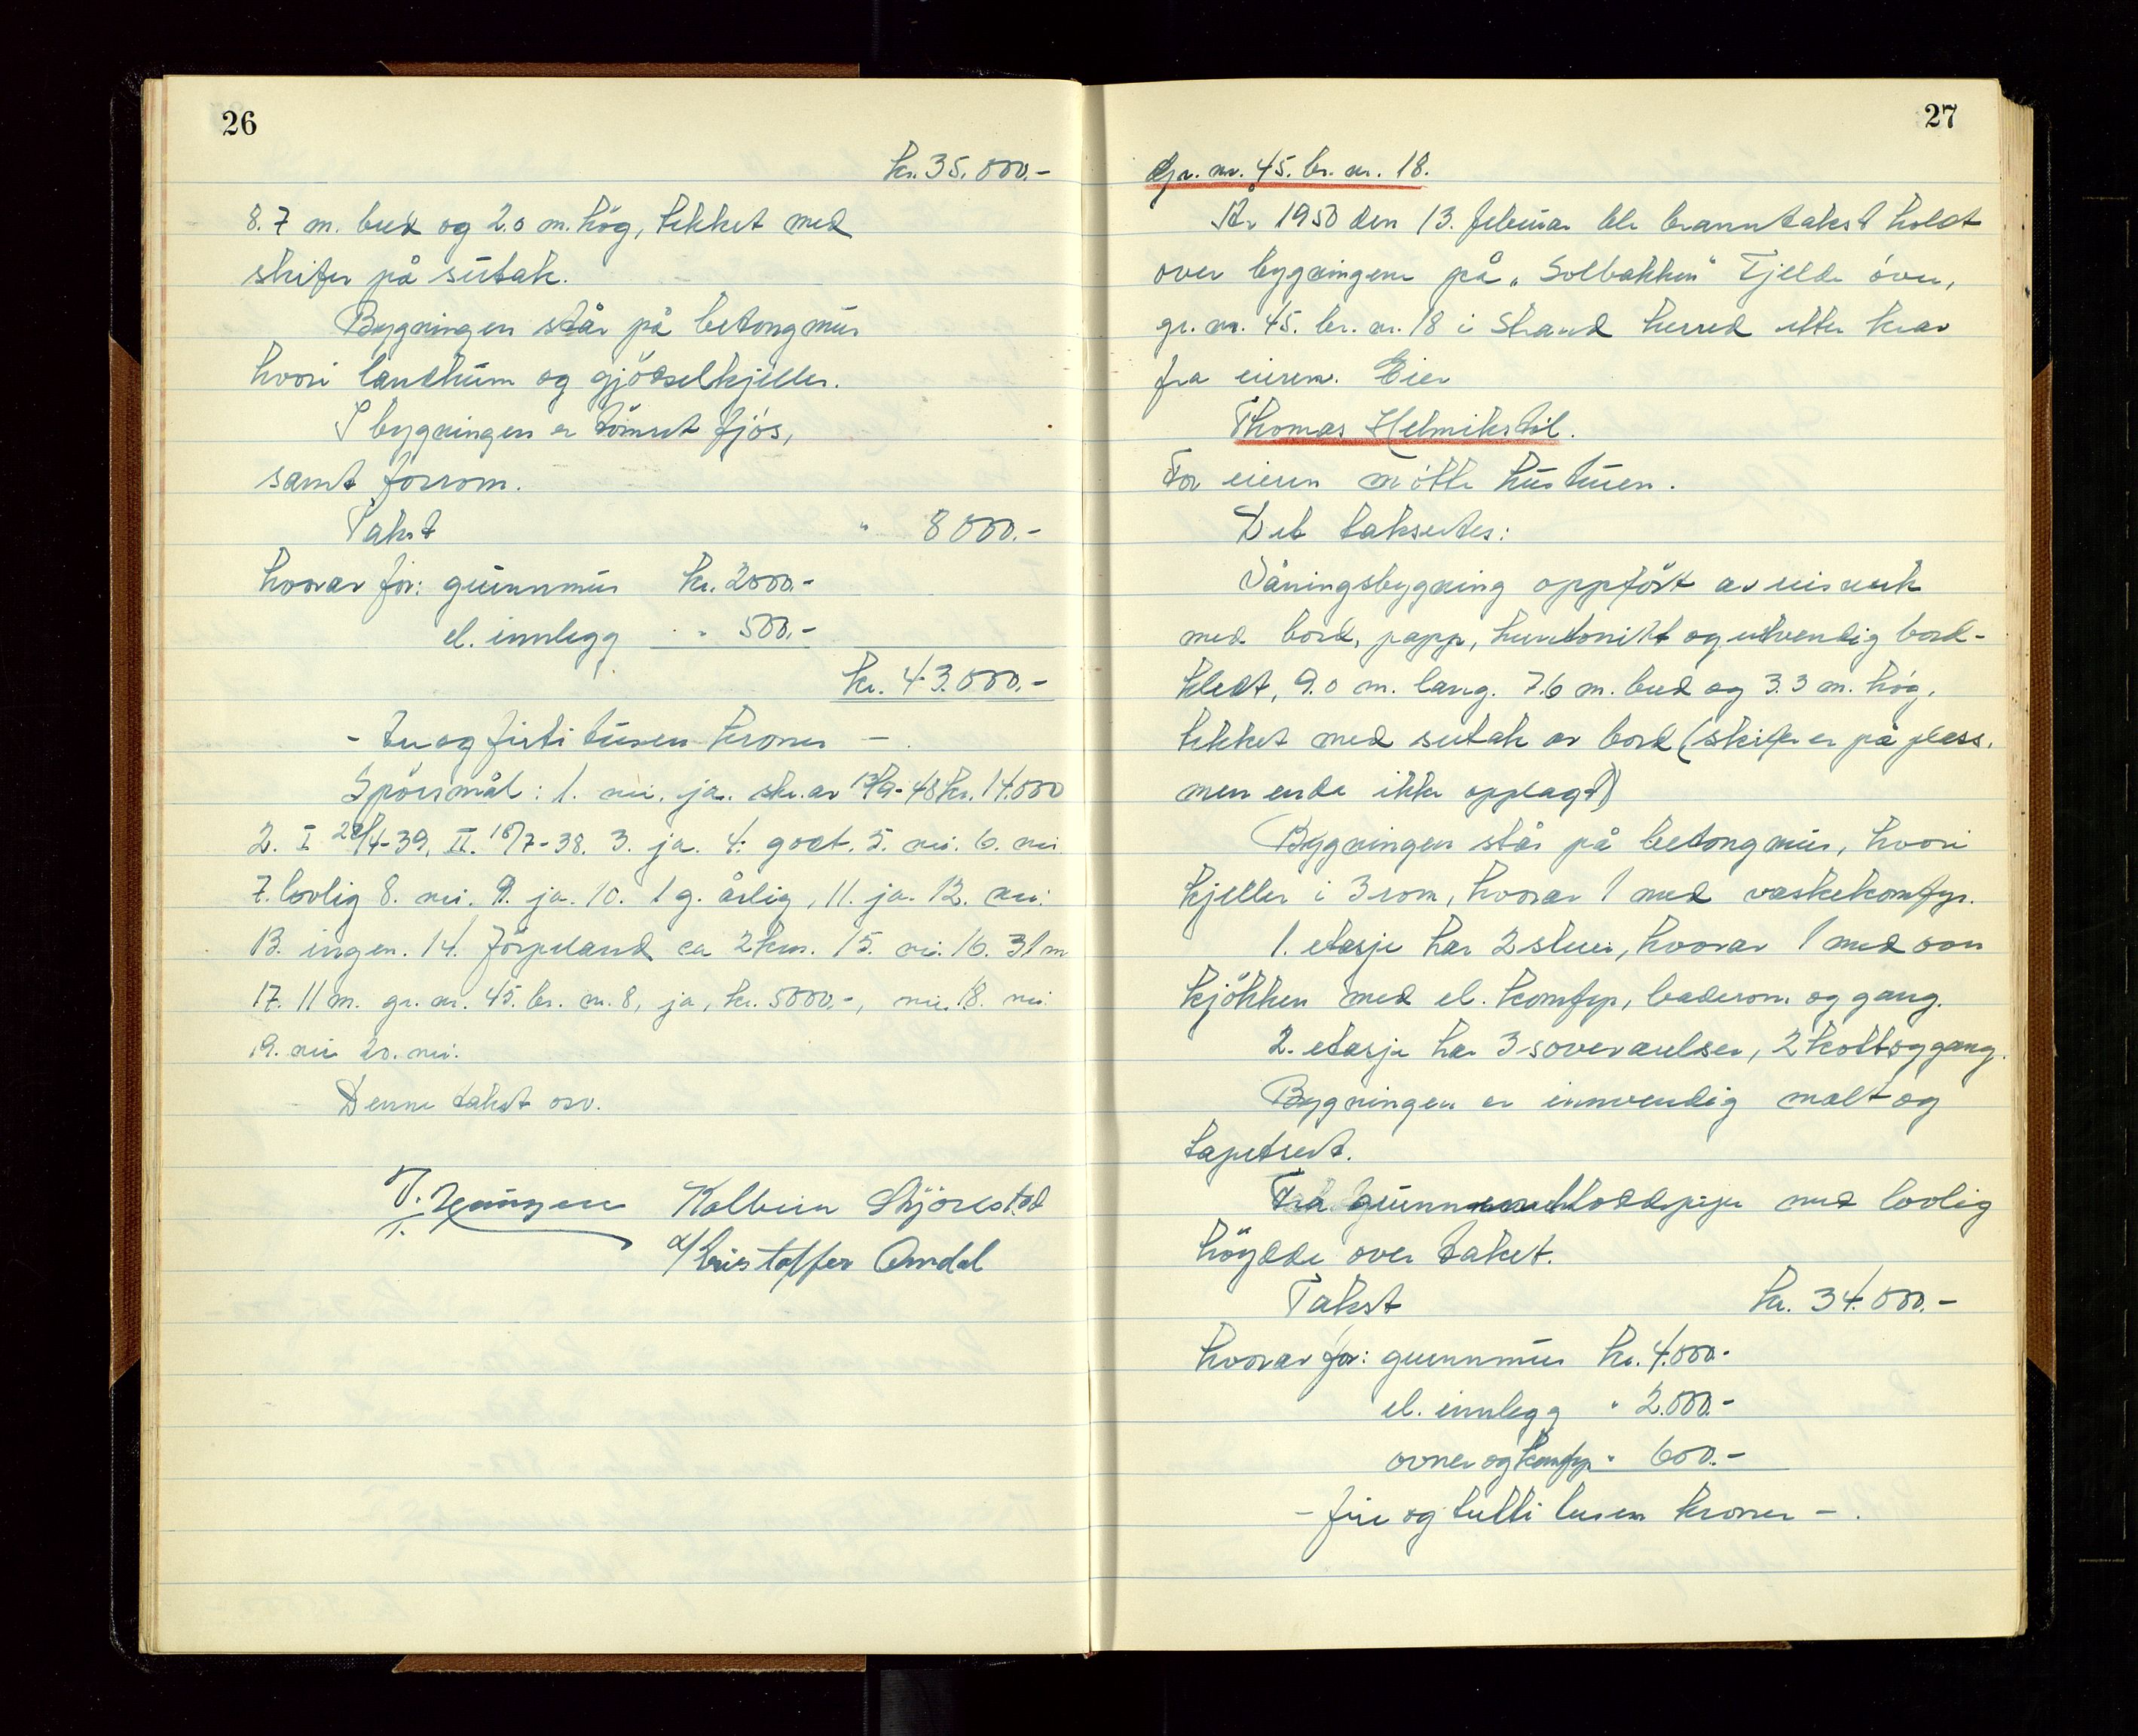 26
kr. 35.000.-
8.7 m. bred og 2.0 m. høg, tekket med
skifer på sutak.
Bygningen står på betongmur
hvori landrum og gjödselkjeller.
I bygningen er tömret fjös,
samt forrom.
Takst " 8000.-
hvorav for: grunnmur kr. 2000.-
el. innlegg " 500.-
kr. 43.000.-
- tre og firti tusen kroner -.
Spörsmål: 1. nei. ja. skr. av 13/9-48 kr. 14.000
2. I 28/4-39, II. 18/7-38. 3. ja. 4. godt. 5. nei. 6. nei
7. lovlig 8. nei. 9. ja. 10. 1 g. årlig, 11. ja. 12. nei.
13. ingen. 14. Jörpeland ca 2 km. 15. nei. 16. 31 m
17. 11 m. gr. nr. 45. br. nr. 8, ja, kr. 5000.-, nei. 18. nei.
19. nei 20. nei.
Denne takst osv.
Kolbein Skjörestad
Kristoffer Amdal
27
Gr. nr. 45. br. nr. 18.
År 1950 den 13. februar ble branntakst holdt
over bygningene på "Solbakken" Fjelde övre,
gr. nr. 45. br. nr. 18 i Strand herred etter krav
fra eieren. Eier
Thomas Helmikstöl.
For eieren mötte hustruen.
Det taksertes:
Våningsbygning oppfört av reisverk
med bord, papp, huntonitt og utvendig bord-
kledt, 9.0 m. lang. 7.6 m. bred og 3.3 m. hög,
tekket med sutak av bord (skifer er på plass.
men enda ikke opplagt)
Bygningen står på betongmur, hvori
kjeller i 3 rom, hvorav 1 med vaskekomfyr.
1. etasje har 2 stuer, hvorav 1 med ovn
kjökken med el. komfyr, baderom og gang.
2. etasje har 3 soveværelser, 2 kott og gang.
Bygningen er innvendig malt og
tapetsert.
Fra grunnen kloddpipe med lovlig
höyde over taket.
Takst kr. 34.000.-
hvorav for: grunnmur kr. 4.000.-
el. innlegg " 2.000.-
ovner og komfyr " 600.-
- fire og tretti tusen kroner -.